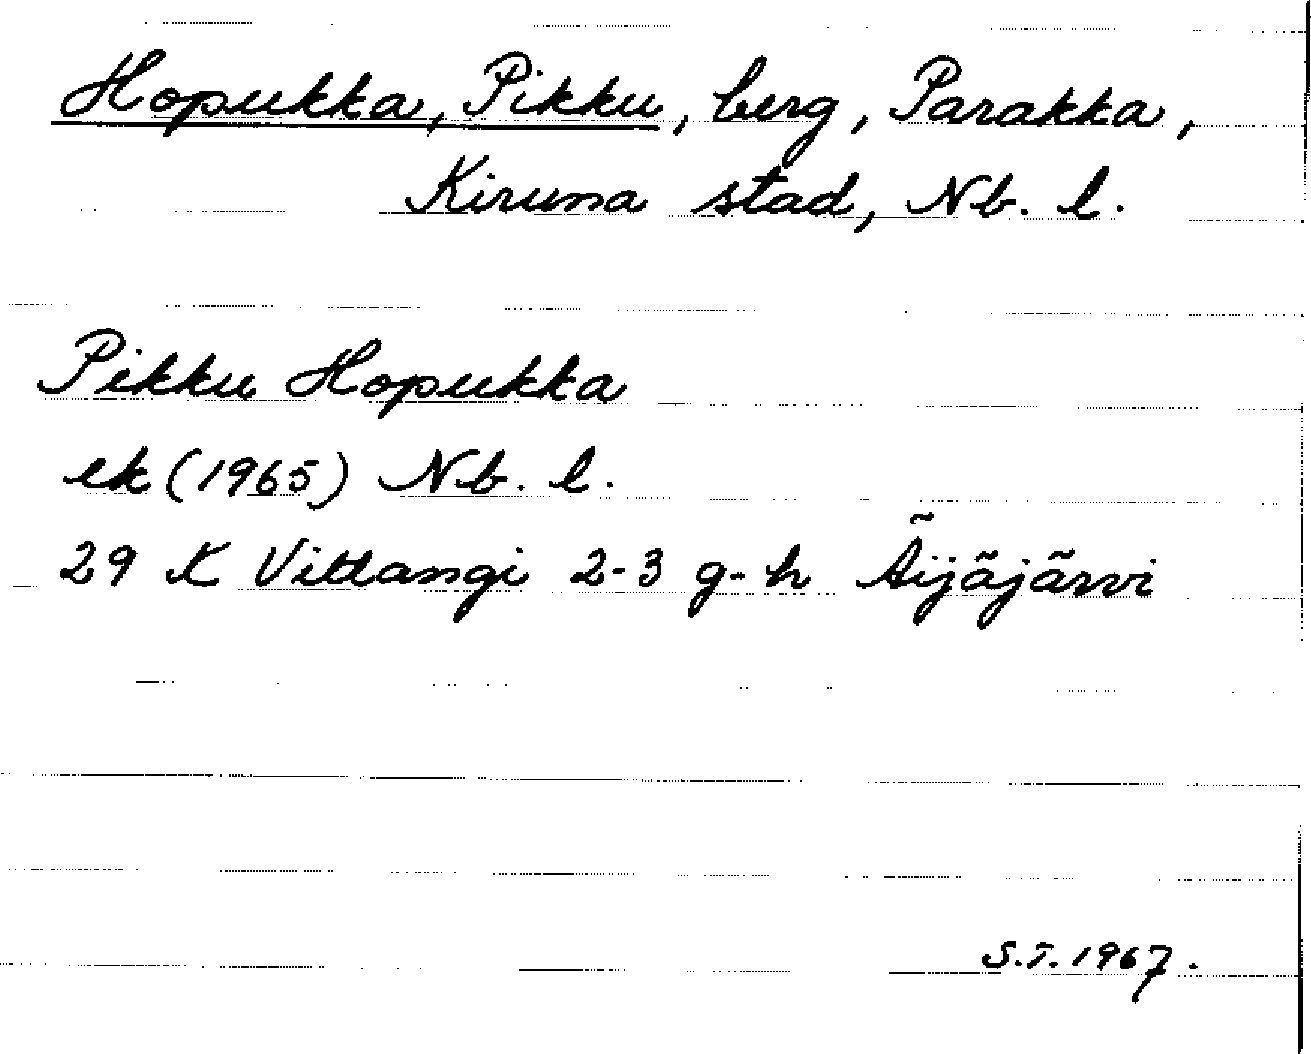 Hopukka, Pikku, berg, Parakka,
Kiruna stad, Nb. l.
Pikku Hopukka
ek (1965) Nb. l.
29 K Vittangi 2-3 g-h Äijäjärvi
S.T. 1967.